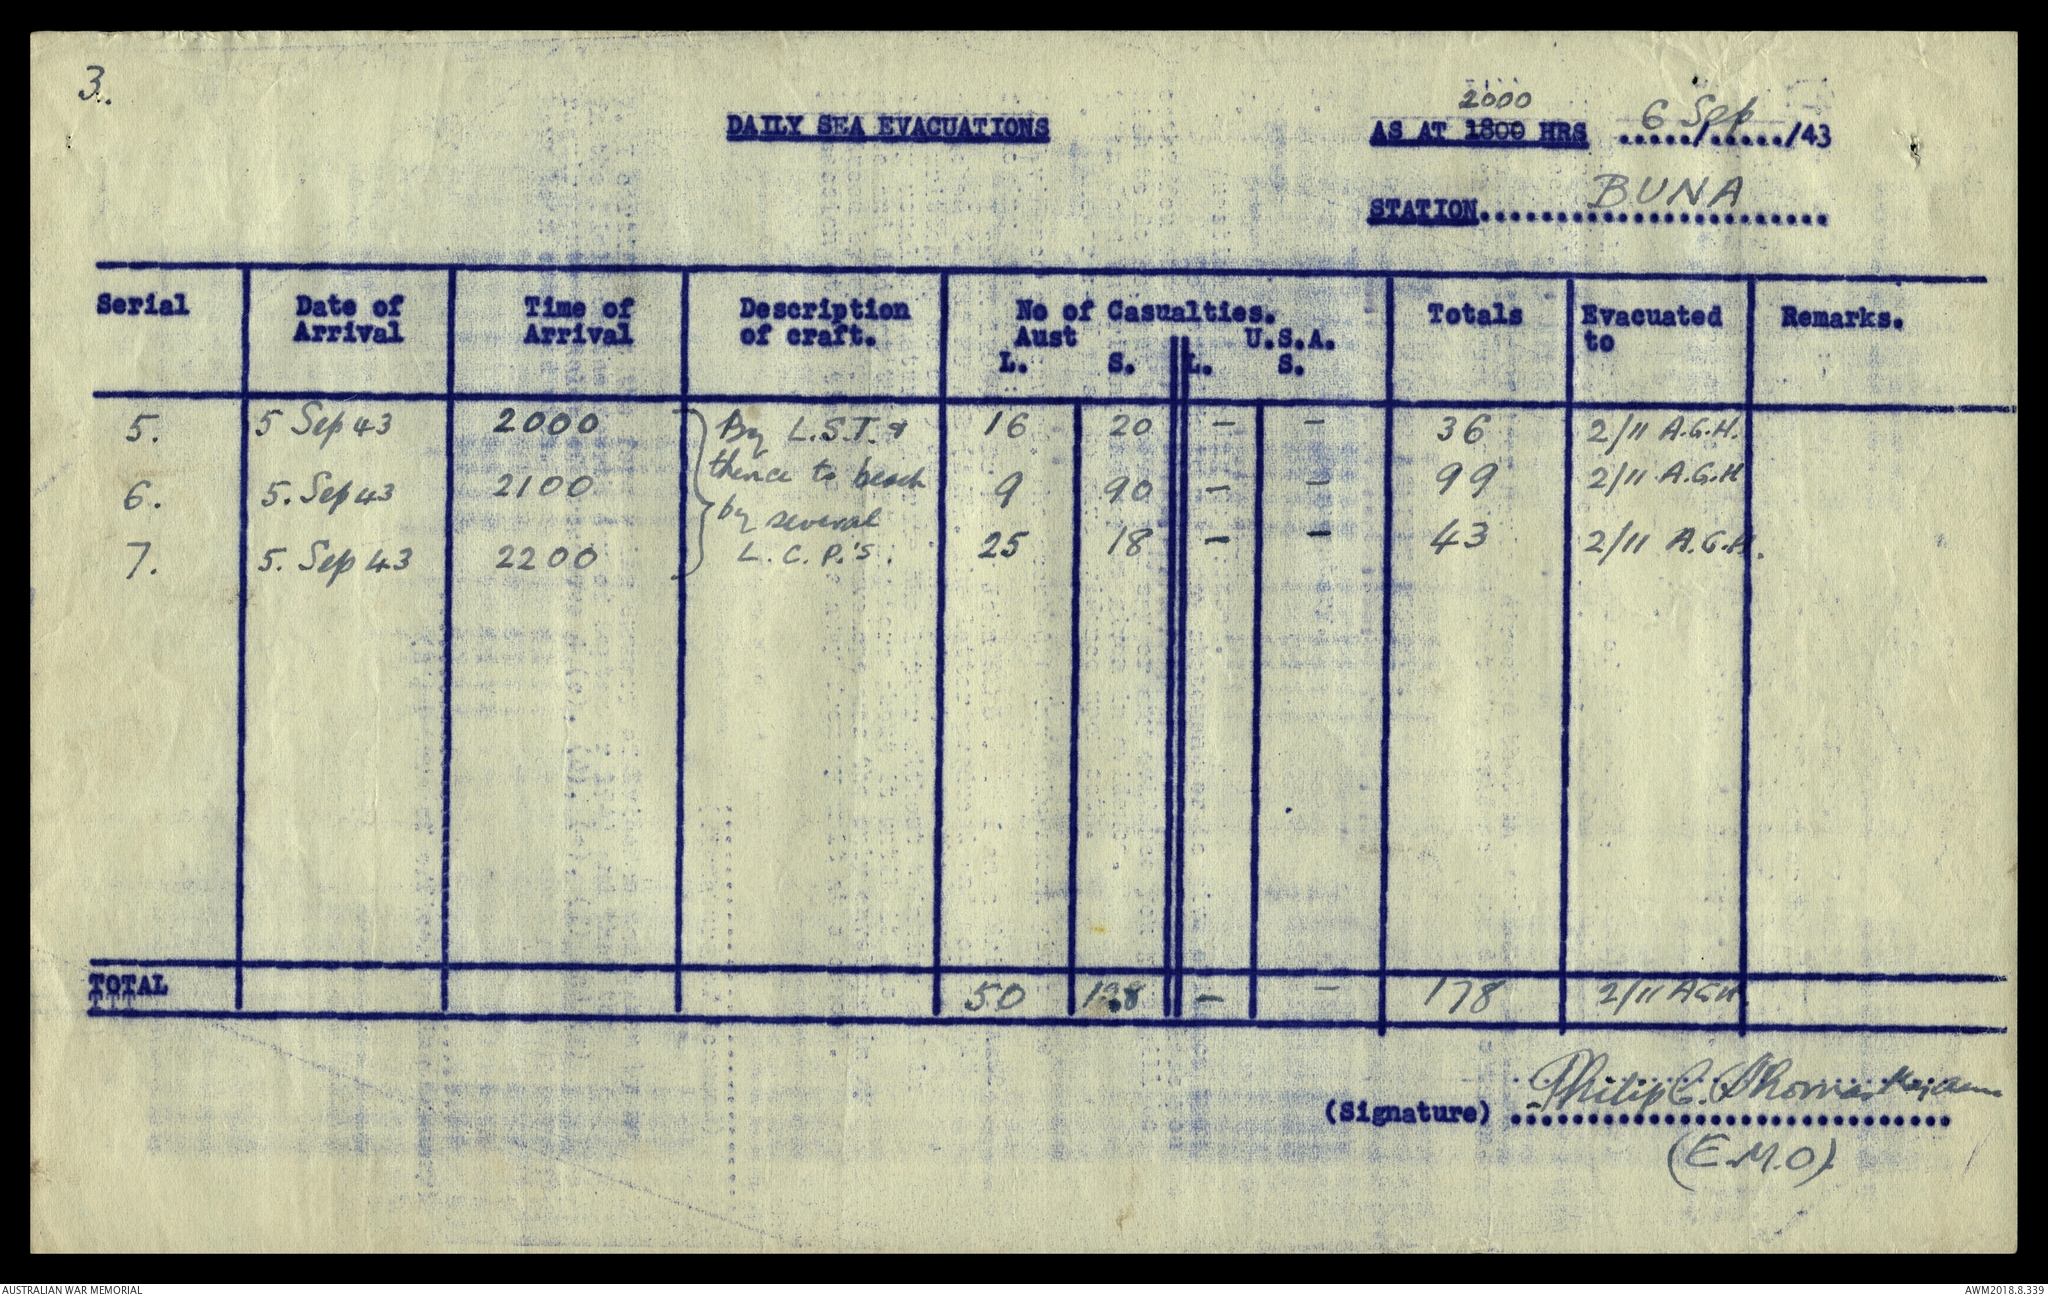 3.
DAILY SEA EVACUATIONS
2000
AS AT 1800 HRS 6 Sep /43
STATION BUNA
Serial Date of Arrival Time of Arrival Description of craft. No of Casualties. Aust L. S. U.S.A. L. S. Totals Evacuated to Remarks.
5. 5 Sep 43 2000 By L.S.T. & 16 20 - - 36 2/11 A.G.H.
thence to beach
6. 5. Sep 43 2100 by several 9 90 - - 99 2/11 A.G.H
7. 5. Sep 43 2200 L.C.P.'s. 25 18 - - 43 2/11 A.G.H.
TOTAL 50 128 - - 178 2/11 AGH.
(Signature) Philip C. Thomas Maj
(E.M.O)
AUSTRALIAN WAR MEMORIAL
AWM2018.8.339